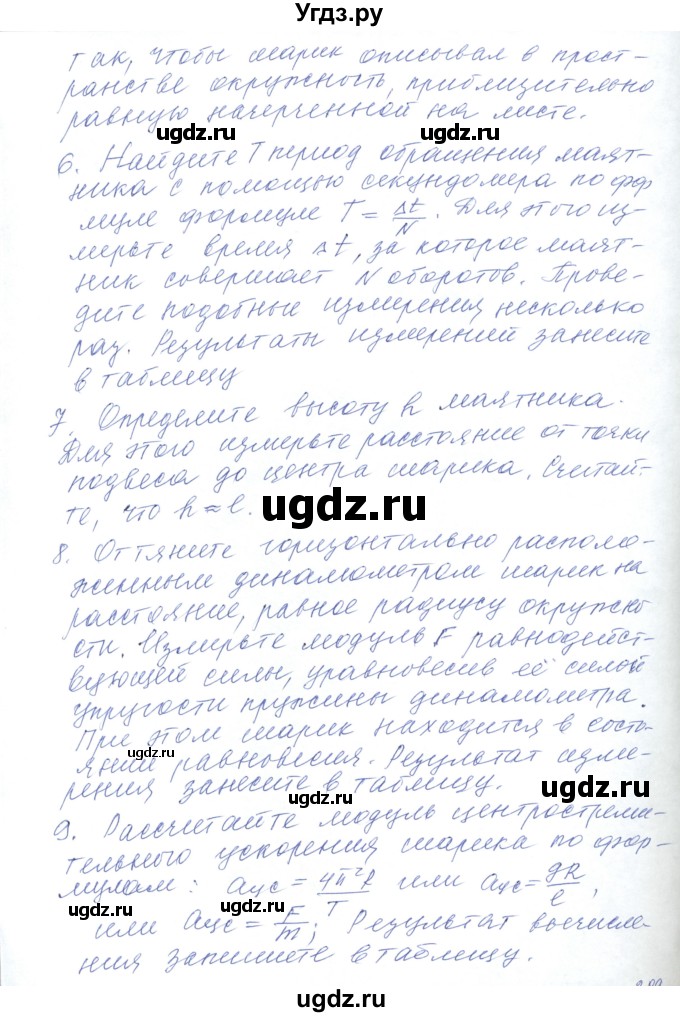 Угдз.ру
так, чтобы шарик описывал в прост-
ранстве окружность, приблизительно
равную начерченной на листе.
ugdz.ru ugdz.ru
6. Найдите T период обращения маят-
ника с помощью секундомера по фор
муле формуле T = Δt/N. Для этого из-
мерьте время Δt, за которое маят-
ник совершает N оборотов. Прове-
дите подобные измерения несколько
раз. Результаты измерений занесите
в таблицу
7. Определите высоту h маятника.
Для этого измерьте расстояние от точки
подвеса до центра шарика. Считай-
те, что h ≈ l.
ugdz.ru ugdz.ru
8. Оттяните горизонтально располо-
женным динамометром шарик на
расстояние, равное радиусу окружно
сти. Измерьте модуль F равнодейст-
вующей силы, уравновесив её силой
упругости пружины динамометра.
При этом шарик находится в состо-
янии равновесия. Результат изме-
ugdz.ru
рения занесите в таблицу.
ugdz.ru ugdz.ru
9. Рассчитайте модуль центростреми-
тельного ускорения шарика по фор-
мулам: aцс = 4π²R/T или aцс = gR/l,
ugdz.ru ugdz.ru
или aцс = F/m; Результат вычисле-
ния запишите в таблицу.
ugdz.ru